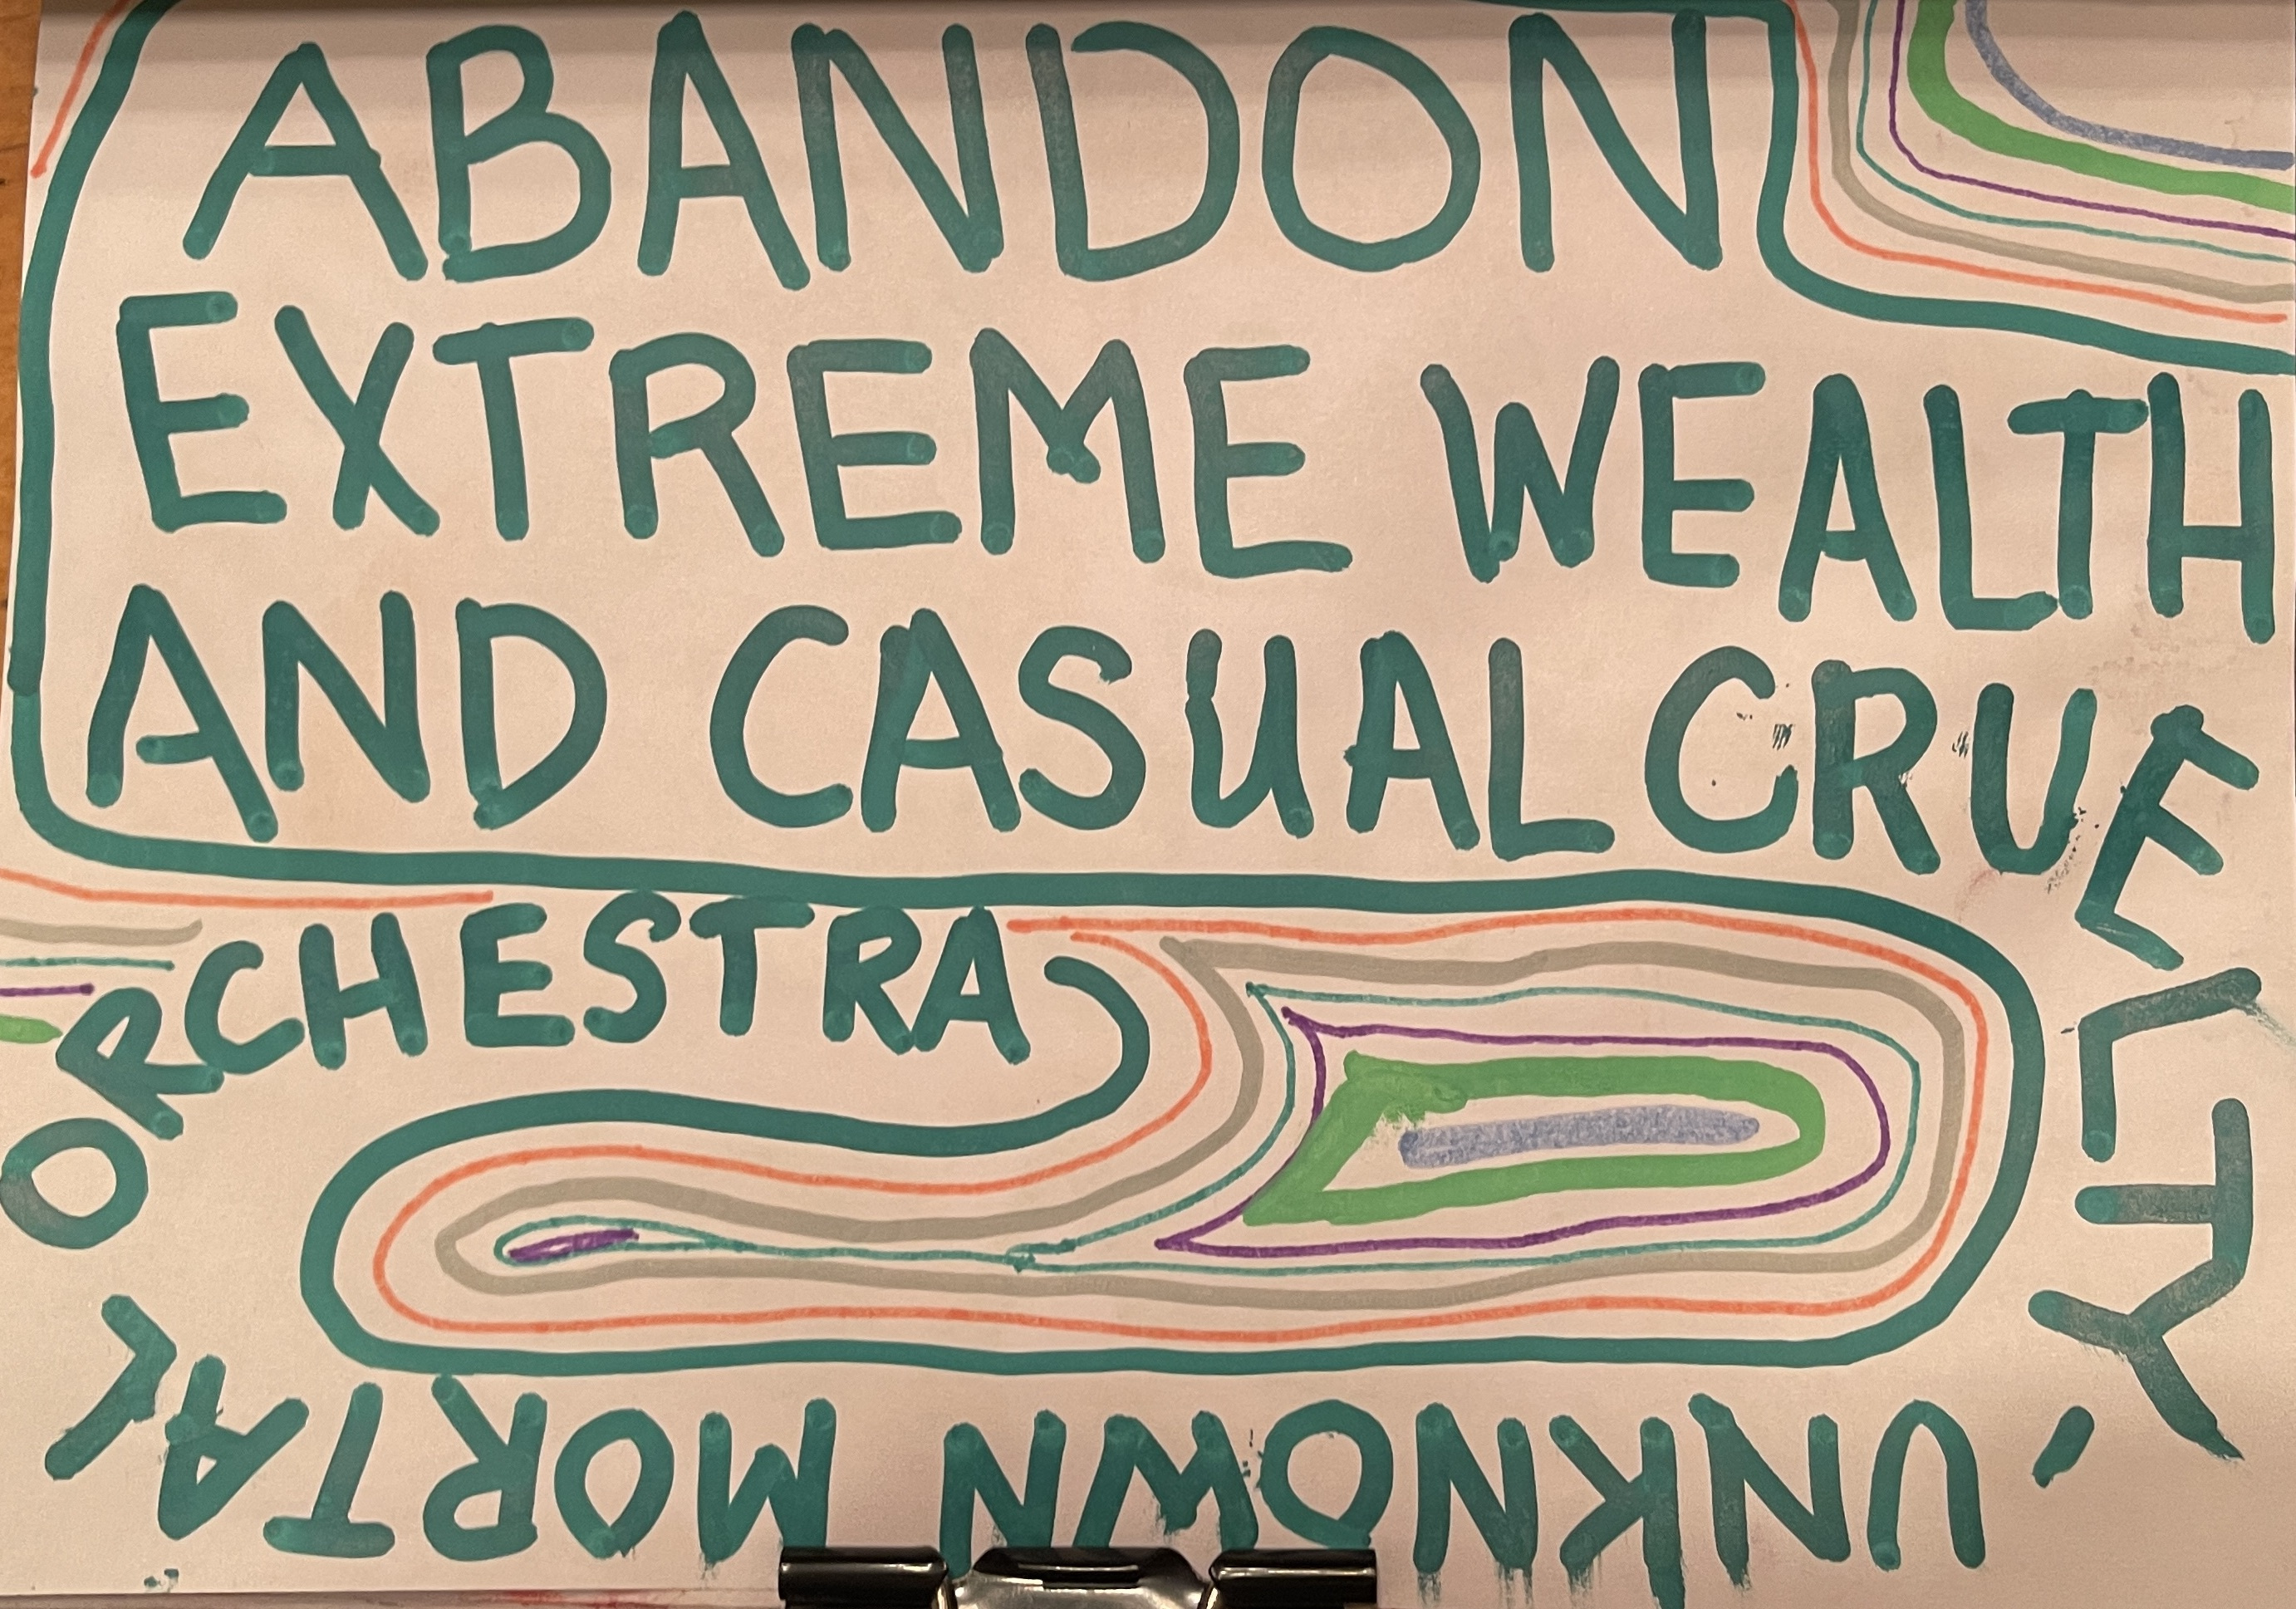 ABANDON
EXTREME WEALTH
AND CASUAL CRUELTY,
UNKNOWN MORTAL
ORCHESTRA